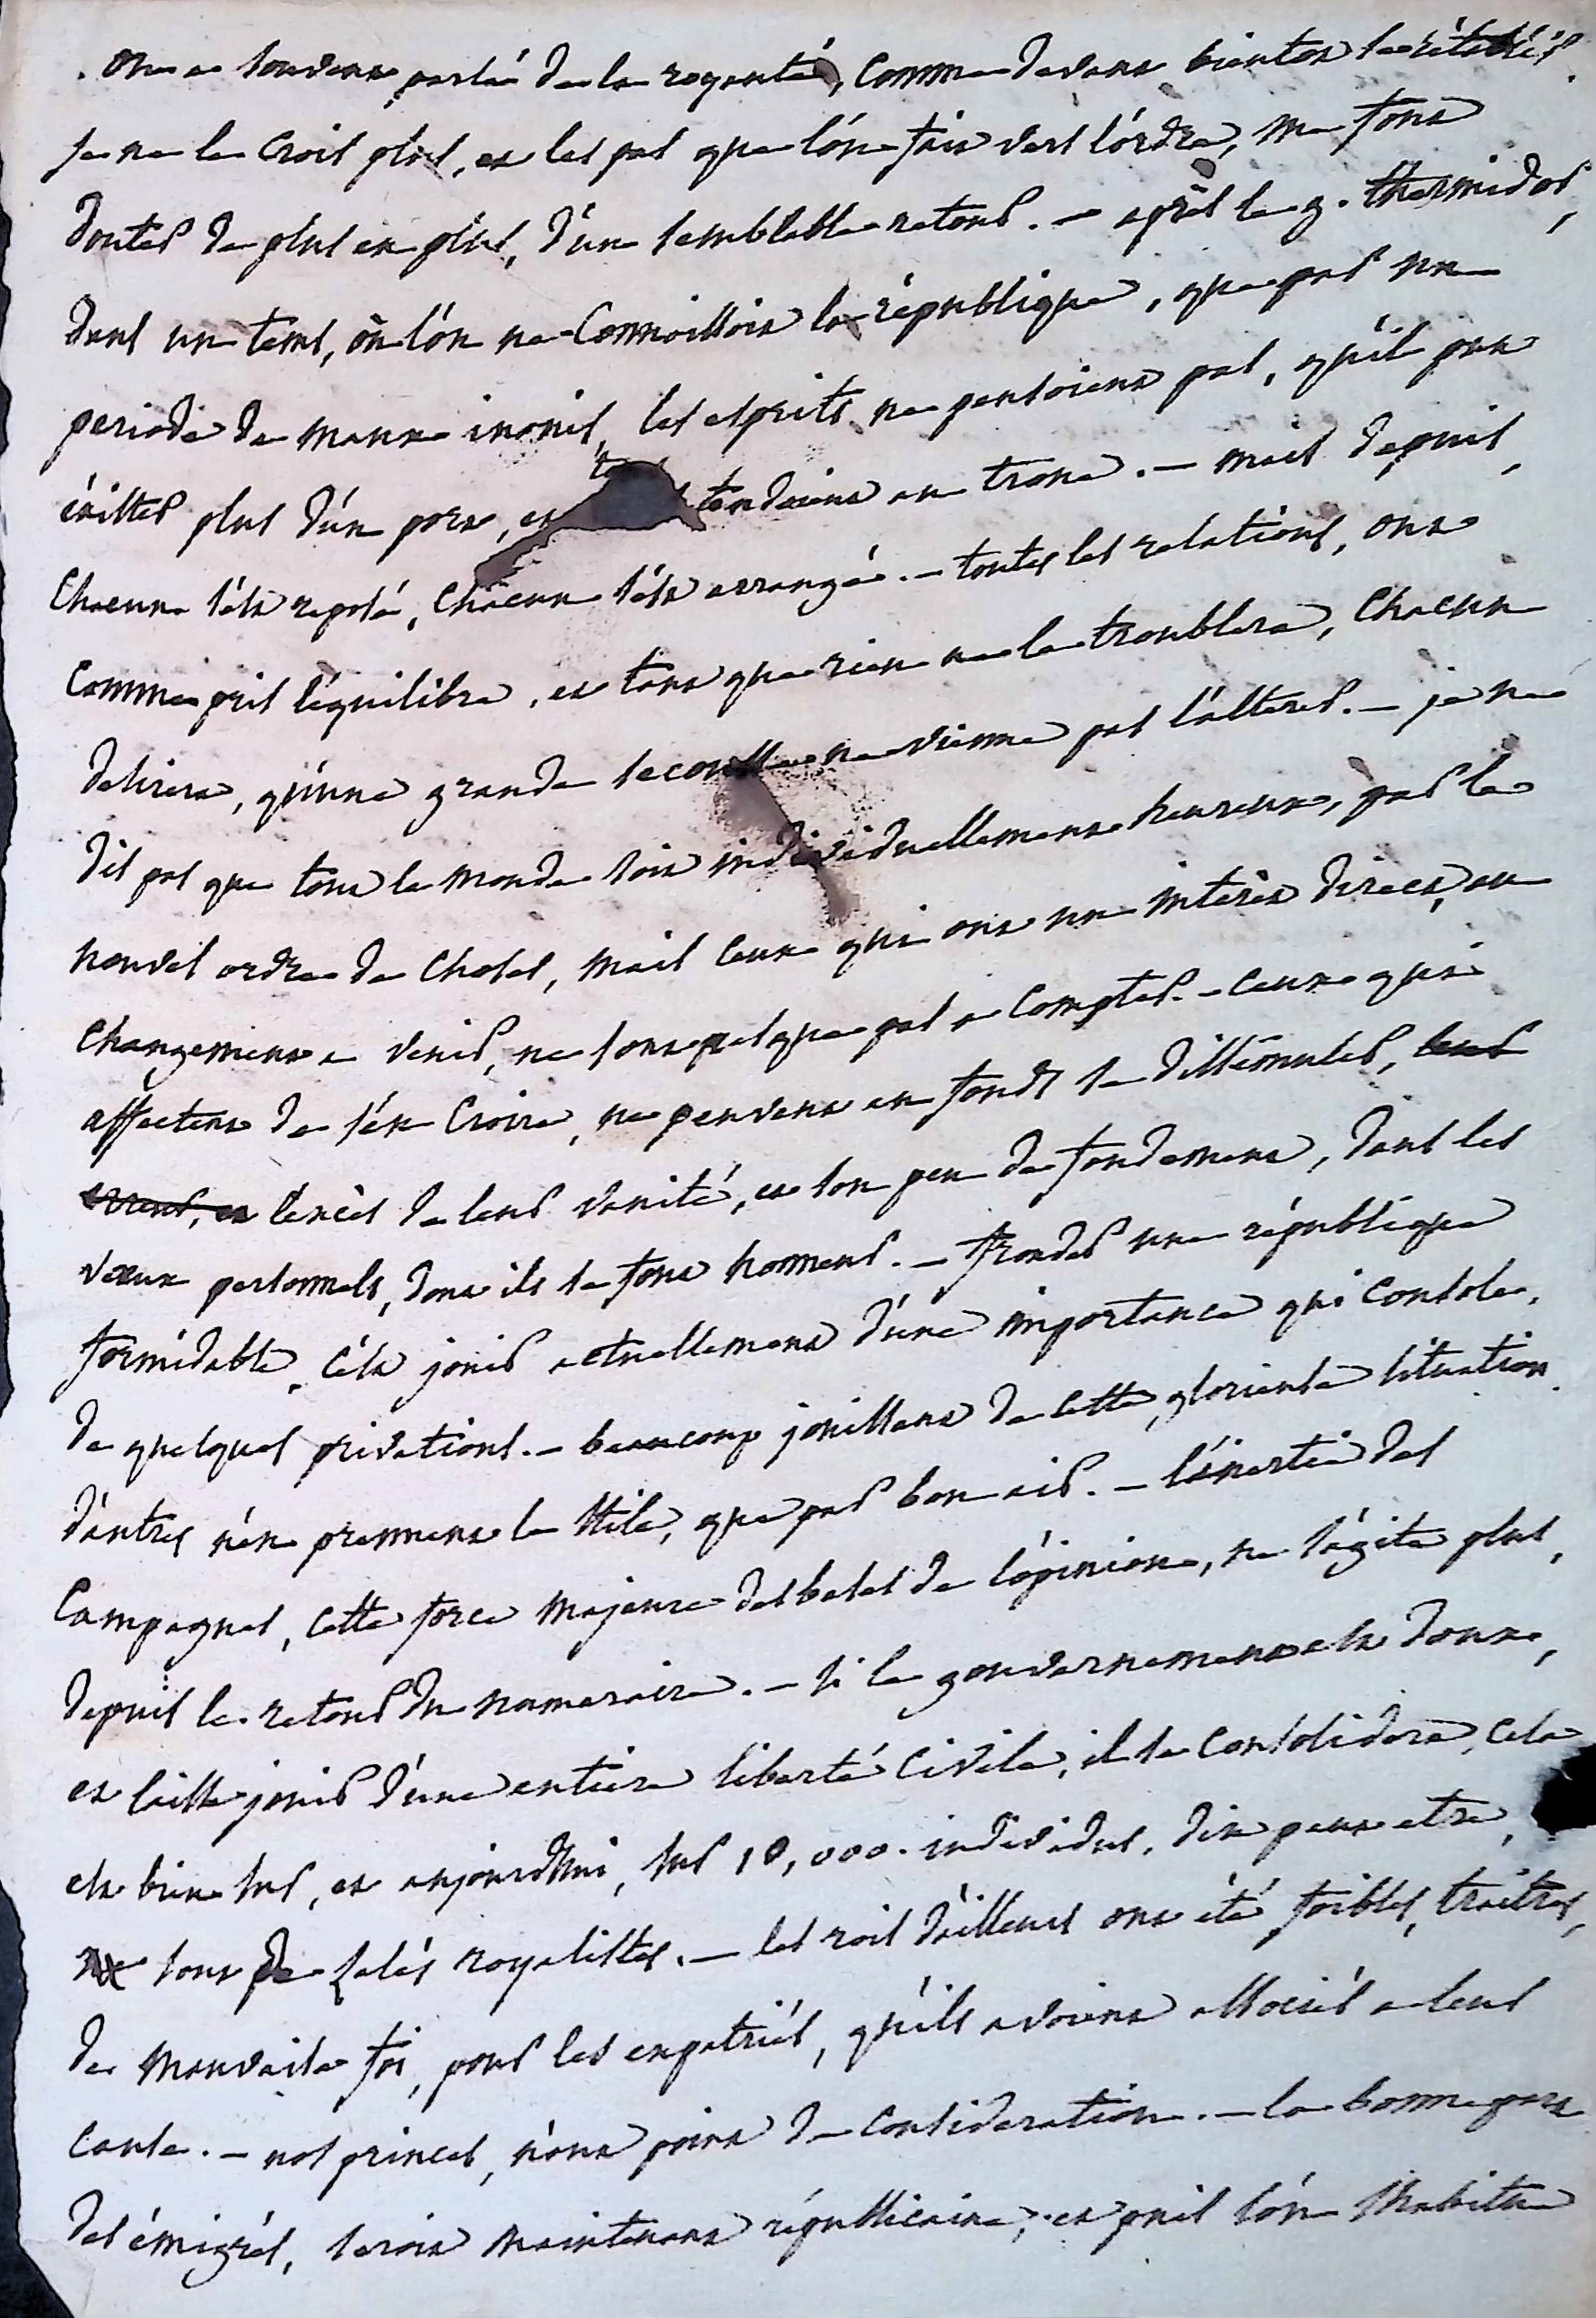 . on a souvent parlé de la royauté, comme devant bientot se rétablir.
je ne le crois plus, et les pas que l'on fait vers l'ordre, me font
douter de plus en plus, d'un semblable retour. — après le 9. thermidor,
dans un tems, où l'on ne connoissoit la république, que par une
periode de maux inouis, les esprits ne pensoient pas, qu'il put
éxister plus d'un port, et tendoient au trone. — mais depuis,
chacun s'est reposé, chacun s'est arrangé. — toutes les relations, ont
comme pris l'équilibre, et tant que rien ne le troublera, chacun
desirera, qu'une grande secousse ne vienne pas l'altérer. — je ne
dis pas que tout le monde soit individuellement heureux, par le
nouvel ordre de choses, mais ceux qui ont un intérêt direct, au
changement a venir, ne sont presque pas a compter. — ceux qui
affectent de s'en croire, ne peuvent au fonds se dissimuler, leur
erreur, et l'excès de leur vanité, et son peu de fondement, dans les
vœux personnels, dont ils se font honneur. — fronder une république
formidable, c'est jouir actuellement d'une importance qui console,
de quelques privations. — beaucoup jouissent de cette glorieuse situation
d'autres n'en prennent le stile, que par bon air. — l'inertie des
campagnes, cette force majeure des bases de l'opinion, ne s'agite plus,
depuis le retour du numeraire. — si le gouvernement est doux,
et laisse jouir d'une entiere liberté civile, il se consolidera, cela
est bien sur, et aujourdhui, sur 10,000. individus, dix peut etre,
ne sont de zelés royalistes. — les rois d'ailleurs ont été foibles, traitres,
de mauvaise foi, pour les expatriés, qu'ils avoient associés a leur
cause. — nos princes, n'ont point de consideration. — la bonne part
des émigrés, seroit maintenant républicaine, et puis l'on s'habitue